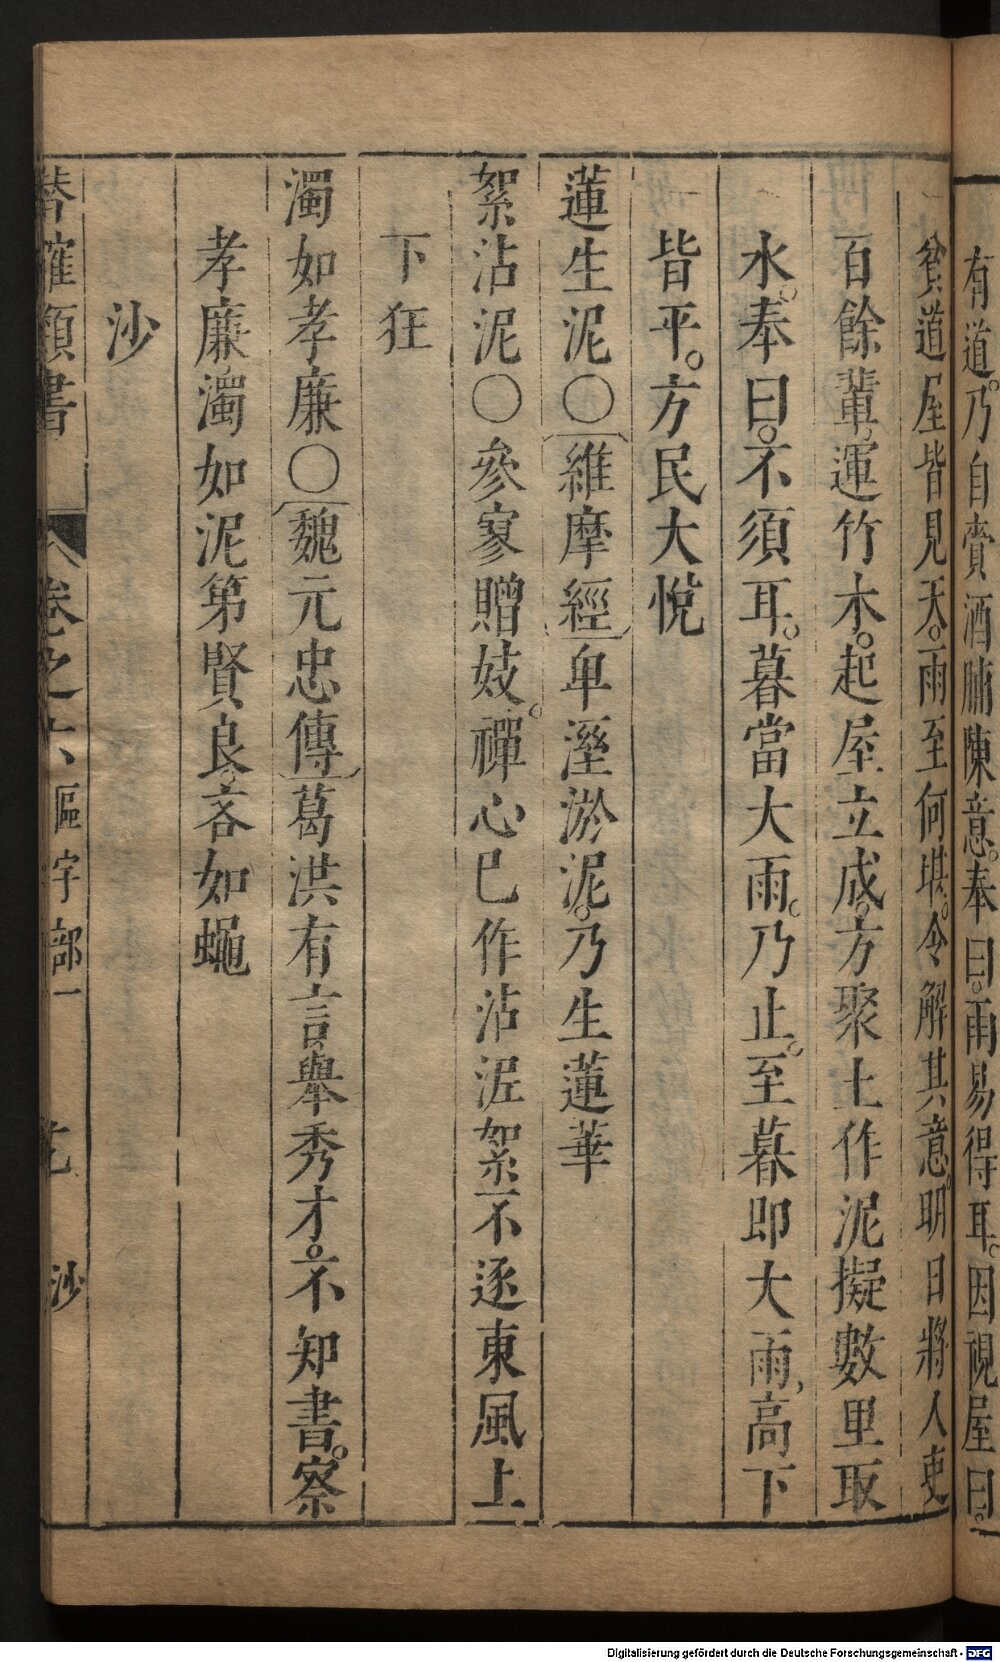 有道。乃自賣酒脯陳意。奉曰。雨易得耳。因視屋曰。
貧道屋皆見天。雨至何堪。令解其意。明日將人吏
百餘輩運竹木。起屋立成。方聚土作泥擬數里取
水。奉曰。不須耳。暮當大雨。乃止。至暮即大雨，高下
皆平。方民大悅
蓮生泥〇維摩經卑溼淤泥。乃生蓮華
絮沾泥〇參寥贈妓。禪心已作沾泥絮不逐東風上
下狂
濁如孝廉〇魏元忠傳葛洪有言舉秀才。不知書。察
孝廉濁如泥第賢良。吝如蠅
沙
類書 卷之六 區字部一 沙
Digitalisierung gefördert durch die Deutsche Forschungsgemeinschaft - DFG